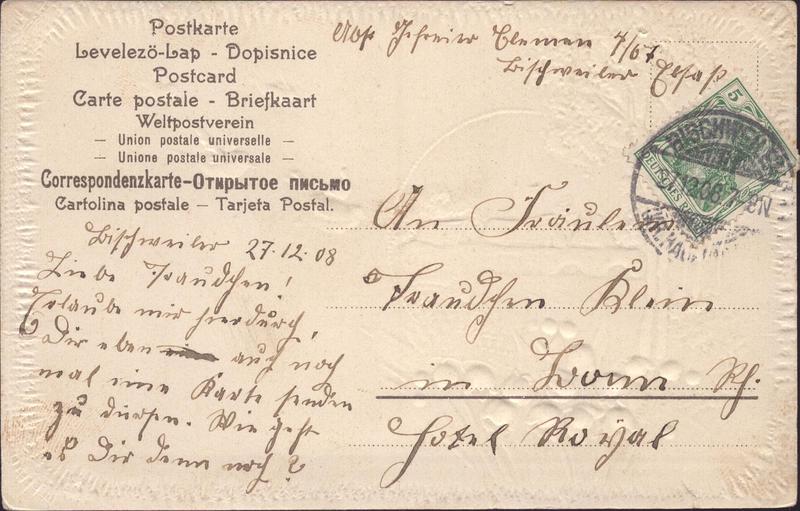 Postkarte
Levelezö-Lap - Dopisnice
Postcard
Carte postale - Briefkaart
Weltpostverein
— Union postale universelle —
— Unione postale universale —
Correspondenzkarte-Открытое письмо
Cartolina postale — Tarjeta Postal.
Abs. Gefreiter Clemen 7/67
Bischweiler Elsaß
5
DEUTSCHES
BISCHWEILER
12 08
An Fräulein
Traudchen Klein
in Bonn Rh.
Hotel Royal
Bischweiler 27.12.08
Liebe Traudchen!
Erlaube mir hierdurch,
Dir eben auch noch
mal eine Karte senden
zu dürfen. Wie geht
es Dir denn noch?